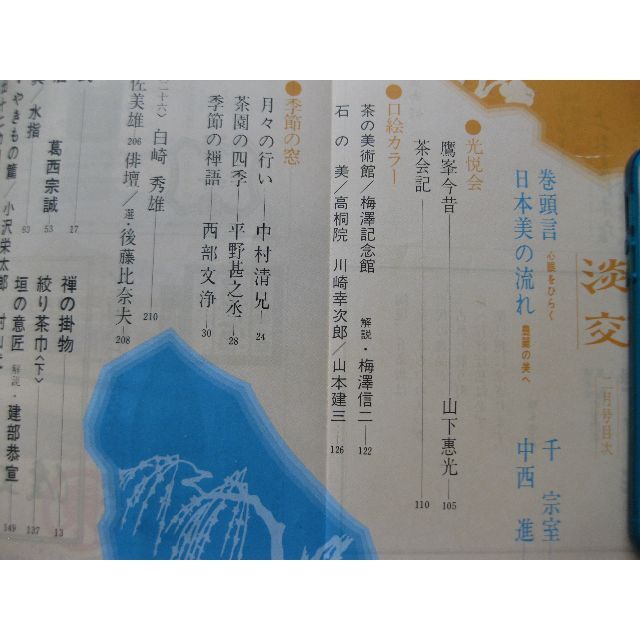 淡交 二月号目次
巻頭言 心眼をひらく 千 宗室
日本美の流れ 豊麗の美へ 中西 進
●光悦会
鷹峯今昔 山下惠光 105
茶会記 110
●口絵カラー
茶の美術館/梅澤記念館 解説・梅澤信二 122
石の美/高桐院 川崎幸次郎/山本建三 126
●季節の窓
月々の行い 中村清兄 24
茶園の四季 平野甚之丞 28
季節の禅語 西部文浄 30
白崎 秀雄 210
佐美雄 206 俳壇/選・後藤比奈夫 208
葛西宗誠 17
水指 53
やきもの篇/小沢栄太郎 93
禅の掛物 13
絞り茶巾〈下〉 137
垣の意匠 解説・建部恭宣 149